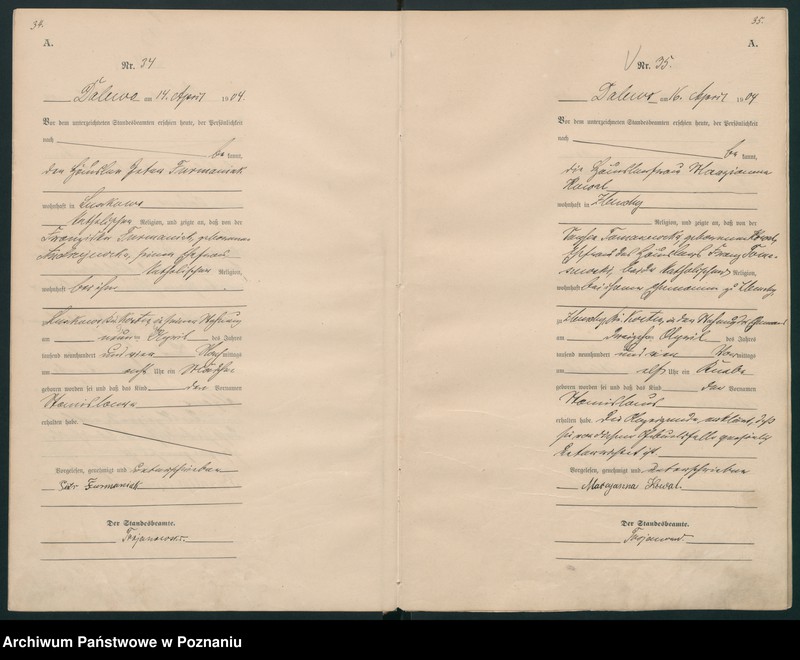 34.
A.
Nr. 34
Dalewo am 14. April 1904.
Vor dem unterzeichneten Standesbeamten erschien heute, der Persönlichkeit
nach
be kannt,
der Häusler Peter Furmaniak
wohnhaft in
katholischer Religion, und zeigte an, daß von der
Franziska Furmaniak, geborenen
seiner Ehefrau
katholischer Religion,
wohnhaft bei ihm
in seiner Wohnung
am neunten April des Jahres
tausend neunhundert und vier Nachmittags
um acht Uhr ein Mädchen
geboren worden sei und daß das Kind den Vornamen
Stanislawa
erhalten habe.
Vorgelesen, genehmigt und unterschrieben
Piotr Furmaniak
Der Standesbeamte.
35.
A.
Nr. 35.
Dalewo am 16. April 1904
Vor dem unterzeichneten Standesbeamten erschien heute, der Persönlichkeit
nach
be kannt,
die Häuslerfrau Maryanna
wohnhaft in
Religion, und zeigte an, daß von der
geborenen
Ehefrau des Häuslers Franz
beide katholischer Religion,
wohnhaft bei ihrem Ehemann zu
zu in der Wohnung der Ehemann
am dreizehn April des Jahres
tausend neunhundert und vier Vormittags
um elf Uhr ein Knabe
geboren worden sei und daß das Kind den Vornamen
Stanislaus
erhalten habe. Die Anzeigende erklärt, daß
sie von diesem Geburtsfalle
unterrichtet ist.
Vorgelesen, genehmigt und unterschrieben
Maryanna
Der Standesbeamte.
Archiwum Państwowe w Poznaniu